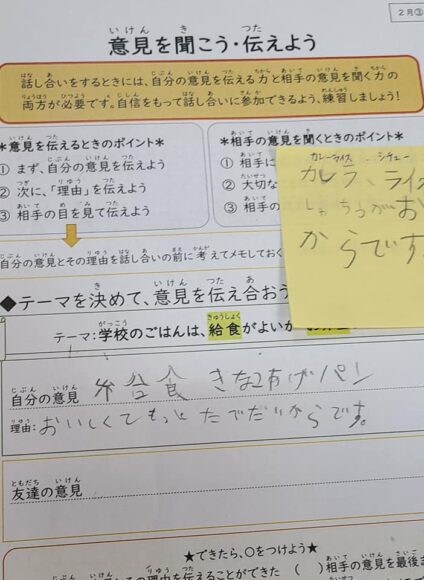 2月③
意見を聞こう・伝えよう
話し合いをするときには、自分の意見を伝える力と相手の意見を聞く力の
両方が必要です。自信をもって話し合いに参加できるよう、練習しましょう!
*意見を伝えるときのポイント*
① まず、自分の意見を伝えよう
② 次に、「理由」を伝えよう
③ 相手の目を見て伝えよう
*相手の意見を聞くときのポイント*
① 相手に
② 大切な
③ 相手の
カレーライス シチュー
カレラ、ライス
がお
からです
自分の意見とその理由を話し合いの前に考えてメモしておく
◆テーマを決めて、意見を伝え合おう
テーマ:学校のごはんは、給食がよいか
自分の意見 給食 きなこあげパン
理由: おいしくてもっとたべだいからです。
友達の意見
★できたら、○をつけよう★
理由を伝えることができた ( )相手の意見を最後ま